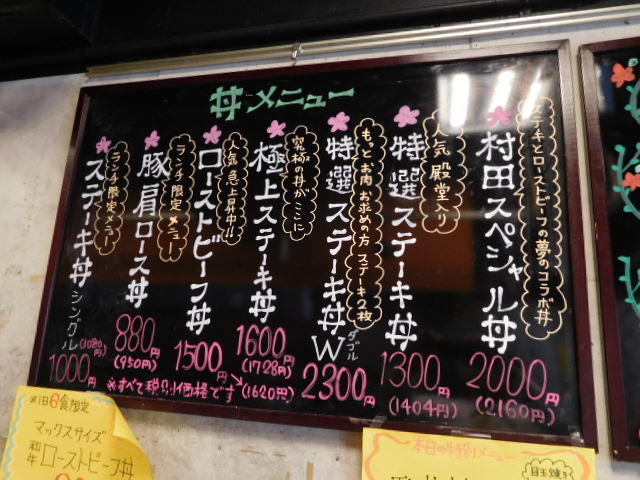 丼メニュー
村田スペシャル丼
ステーキとローストビーフの夢のコラボ丼
2000円
(2160円)
特選ステーキ丼
人気殿堂入り
1300円
(1404円)
特選ステーキ丼W
ダブル
もっとお肉お求めの方ステーキ2枚
2300円
極上ステーキ丼
究極の丼がここに
1600円
(1728円)
ローストビーフ丼
人気急上昇中!!
1500円
(1620円)
豚肩ロース丼
ランチ限定メニュー
880円
(950円)
ステーキ丼シングル
ランチ限定メニュー
(1080円)
1000円
※すべて税別価格です
限定
マックスサイズ
和牛ローストビーフ丼
本日の特別メニュー
目玉焼き